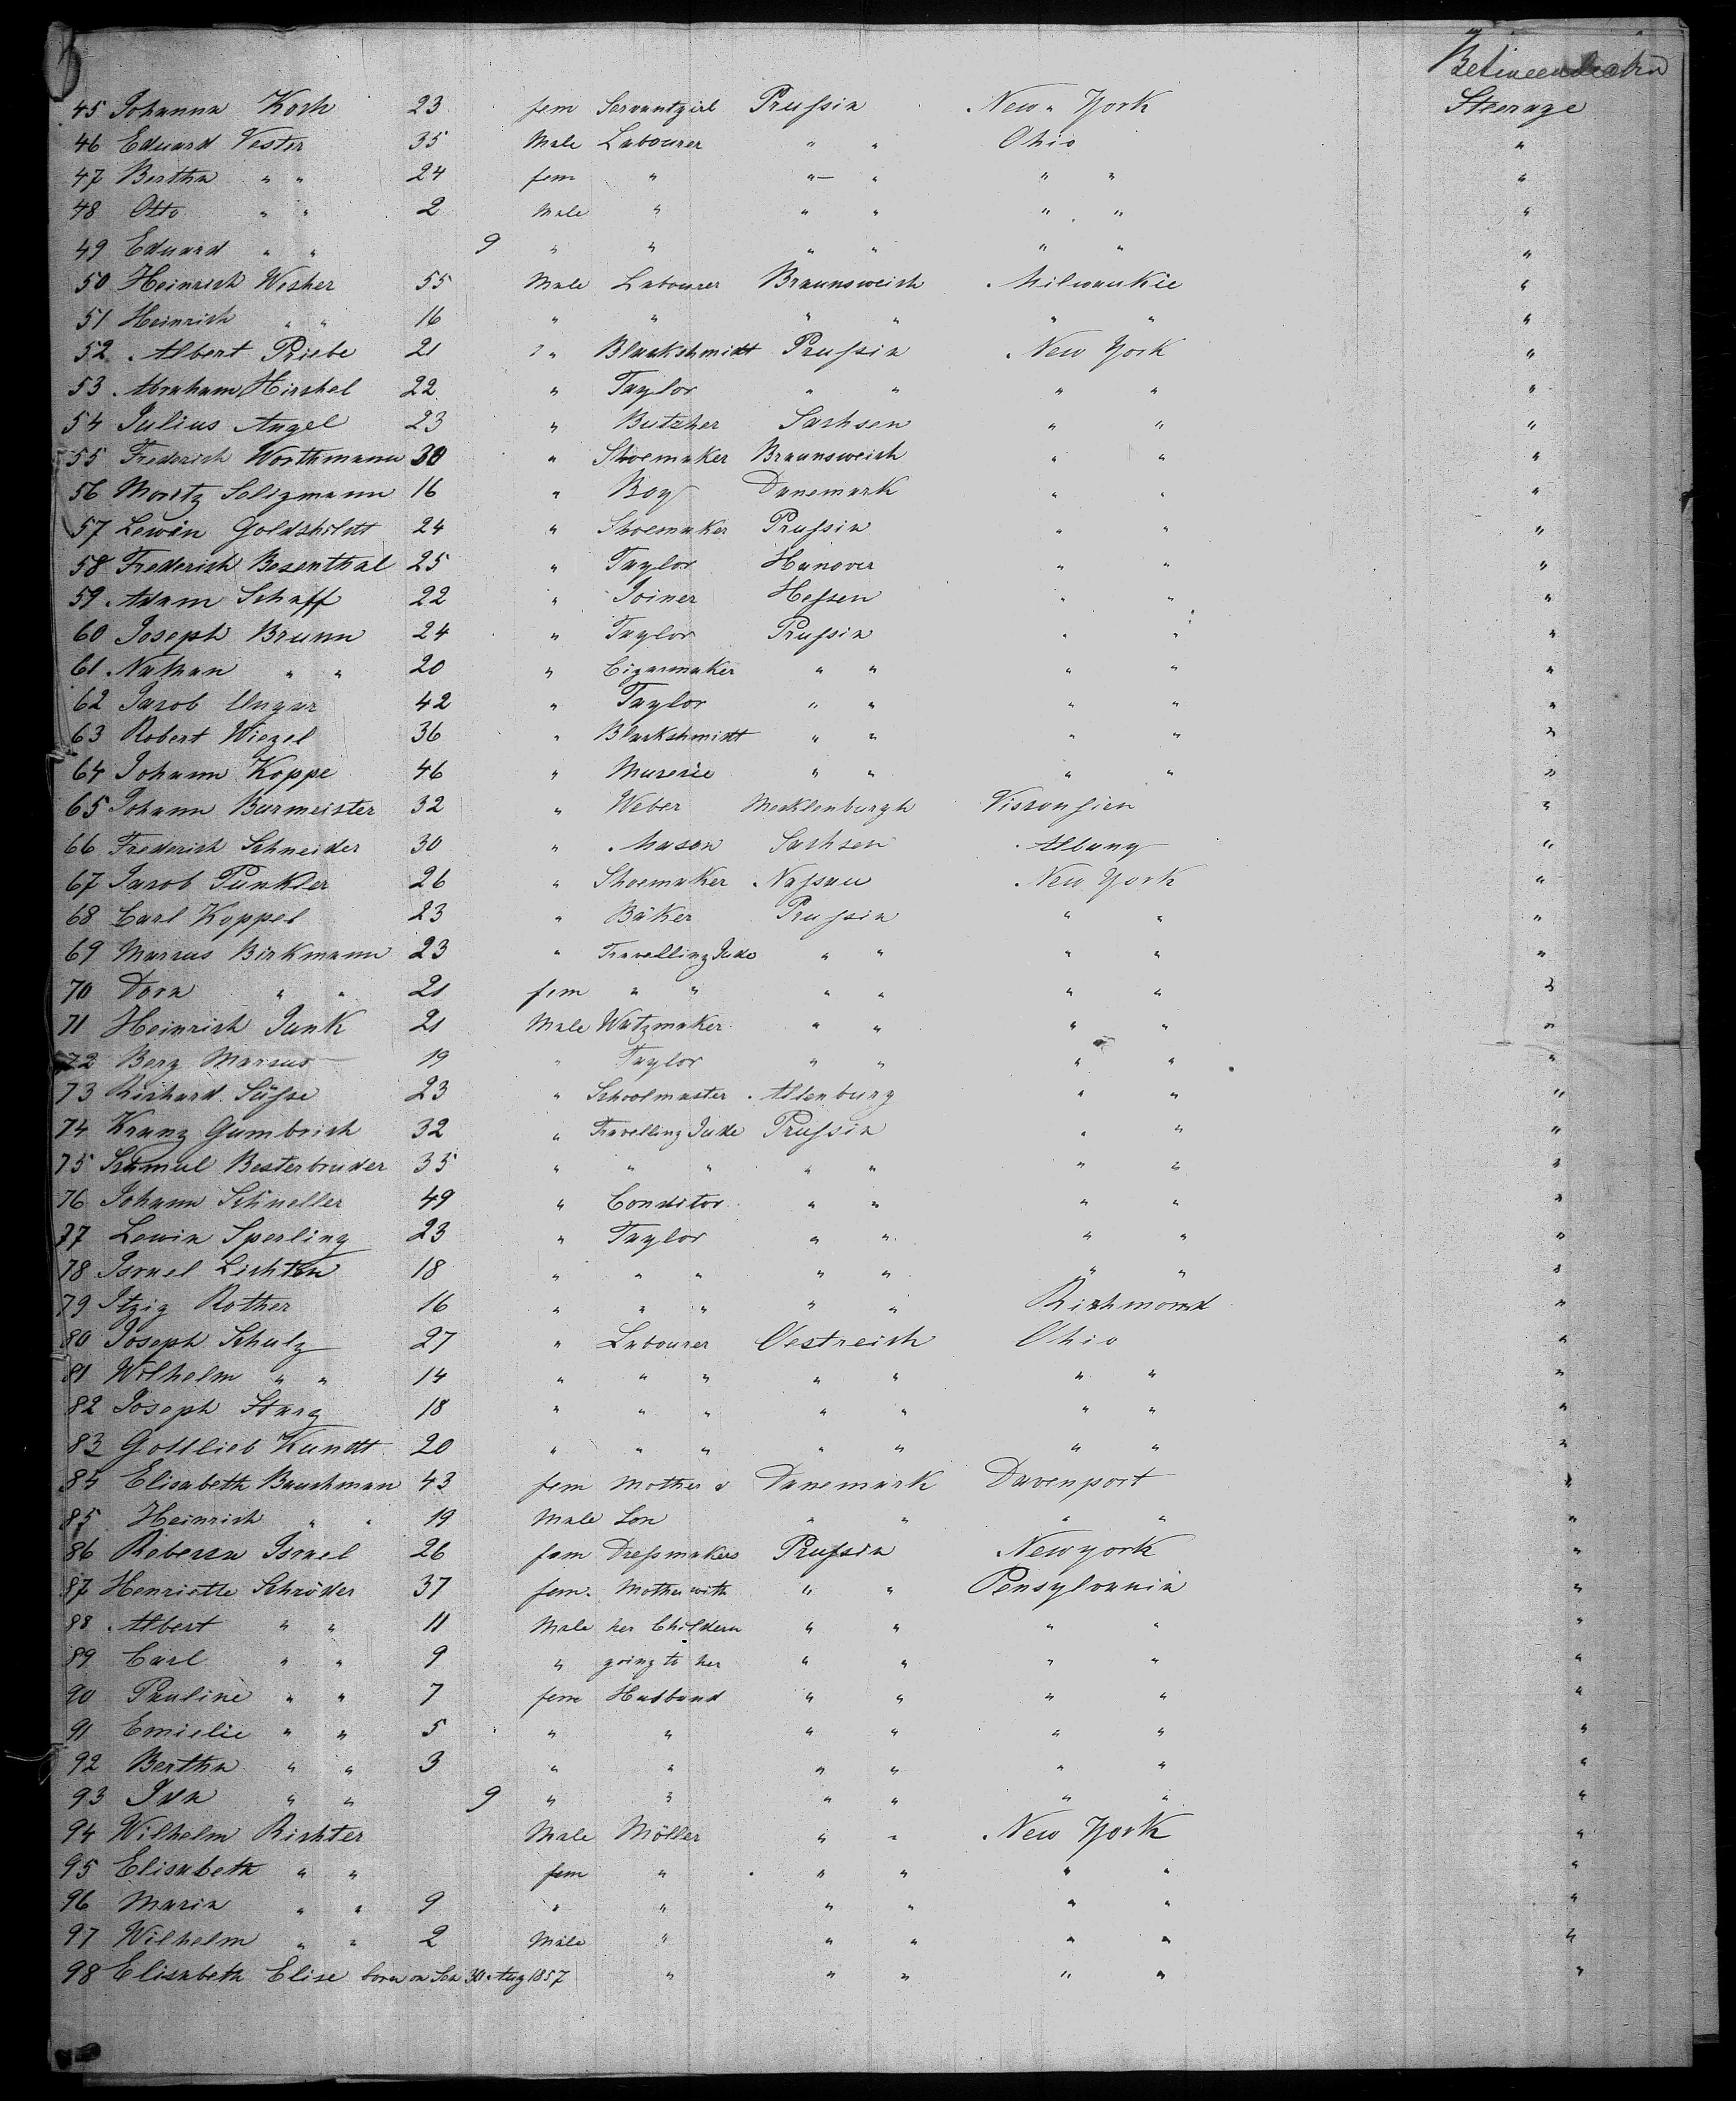 Between decks
45 Johanna Koch 23 fem Servantgirl Prussia New York Steerage
46 Eduard Vester 35 Male Labourer " " Ohio "
47 Bertha " " 24 fem " " — " " " "
48 Otto " " 2 Male " " " " " "
49 Eduard " " 9 " " " " " " "
50 Heinrich Wisher 55 Male Labourer Braunsweich Milwaukie "
51 Heinrich " " 16 " " " " " " "
52 Albert Priebe 21 " Blackshmidt Prussia New York "
53 Abraham Hirshel 22 " Taylor " " " " "
54 Julius Angel 23 " Butzher Sachsen " " "
55 Frederich Worthmann 30 " Shoemaker Braunsweich " " "
56 Moritz Seligmann 16 " Boy Danemark " " "
57 Lewin Goldshildt 24 " Shoemaker Prussia " " "
58 Frederich Besenthal 25 " Taylor Hanover " " "
59 Adam Schaff 22 " Joiner Hessen " " "
60 Joseph Brunn 24 " Taylor Prussia " " "
61 Nathan " " 20 " Cigarmaker " " " " "
62 Jacob Ungar 42 " Taylor " " " " "
63 Robert Wiezel 36 " Blackshmidt " " " " "
64 Johann Koppe 46 " " " " " "
65 Johann Burmeister 32 " Weber Mecklenburgh Vissonsien "
66 Frederich Schneider 30 " Mason Sachsen Albany "
67 Jacob Punkler 26 " Shoemaker Nassau New York "
68 Carl Koppel 23 " Bäker Prussia " " "
69 Marcus Birkmann 23 " Travelling Jude " " " " "
70 Dora " " 21 fem " " " " " " "
71 Heinrich Junk 21 Male Watzmaker " " " " "
72 Berg Marcus 19 " Taylor " " " " "
73 Richard Süsse 23 " Schoolmaster Altenburg " " "
74 Kranz Gumbrich 32 " Travelling Jude Prussia " " "
75 Samuel Besterbruder 35 " " " " " " " "
76 Johann Schneller 49 " Conditor " " " " "
77 Lewin Sperling 23 " Taylor " " " " "
78 Israel Lichten 18 " " " " " " " "
79 Itzig Rother 16 " " " " " Richmond "
80 Joseph Schulz 27 " Labourer Oestreich Ohio "
81 Wilhelm " " 14 " " " " " " " "
82 Joseph Starg 18 " " " " " " " "
83 Gottlieb Kundt 20 " " " " " " " "
84 Elisabeth Bauchman 43 fem Mother & Danemark Davenport "
85 Heinrich " " 19 Male Son " " " " "
86 Rebecca Israel 26 fem Dressmakers Prussia Newyork "
87 Henriette Schröder 37 fem. Mother with " " Pensylvania "
88 Albert " " 11 Male her Childern " " " " "
89 Carl " " 9 " going to her " " " " "
90 Pauline " " 7 fem Husband " " " " "
91 Emielie " " 5 " " " " " " "
92 Bertha " " 3 " " " " " " "
93 Ida " " 9 " " " " " " "
94 Wilhelm Richter Male Möller " " New York "
95 Elisabeth " " fem " " " " " "
96 Maria " " 9 " " " " " " "
97 Wilhelm " " 2 Male " " " " " "
98 Elisabeth Elise born on Sea 30 Aug 1857 " " " " " "